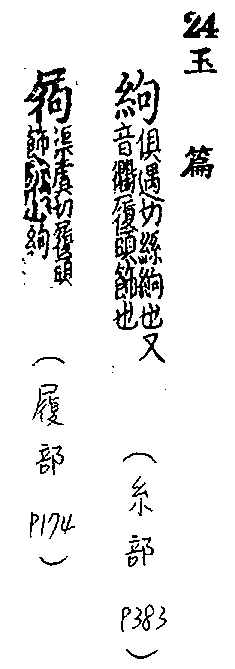 24 玉篇
絇 俱遇切絲絇也又
音衢履頭飾也
(糸部 P383)
渠虞切履頭
飾
絇
(履部 P174)